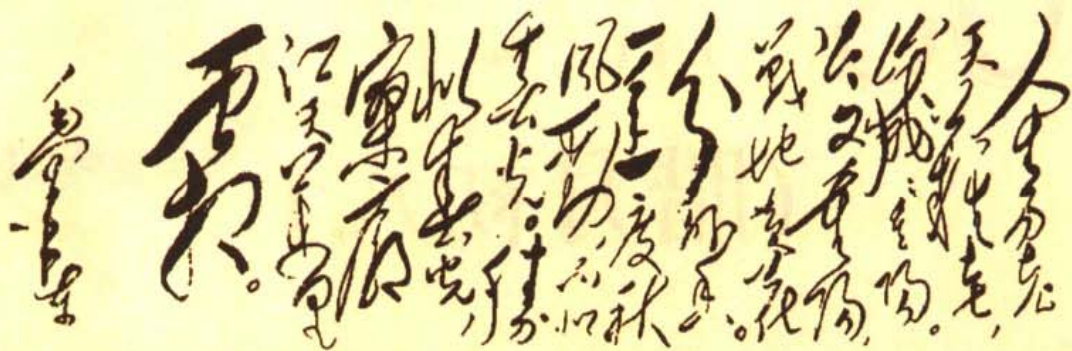 人生易老
天難老，
歲歲重陽。
今又重陽，
戰地黃花
分外香。
一年一度秋
風勁，不似
春光。勝
似春光，
寥廓
江天萬里
霜。
毛澤東